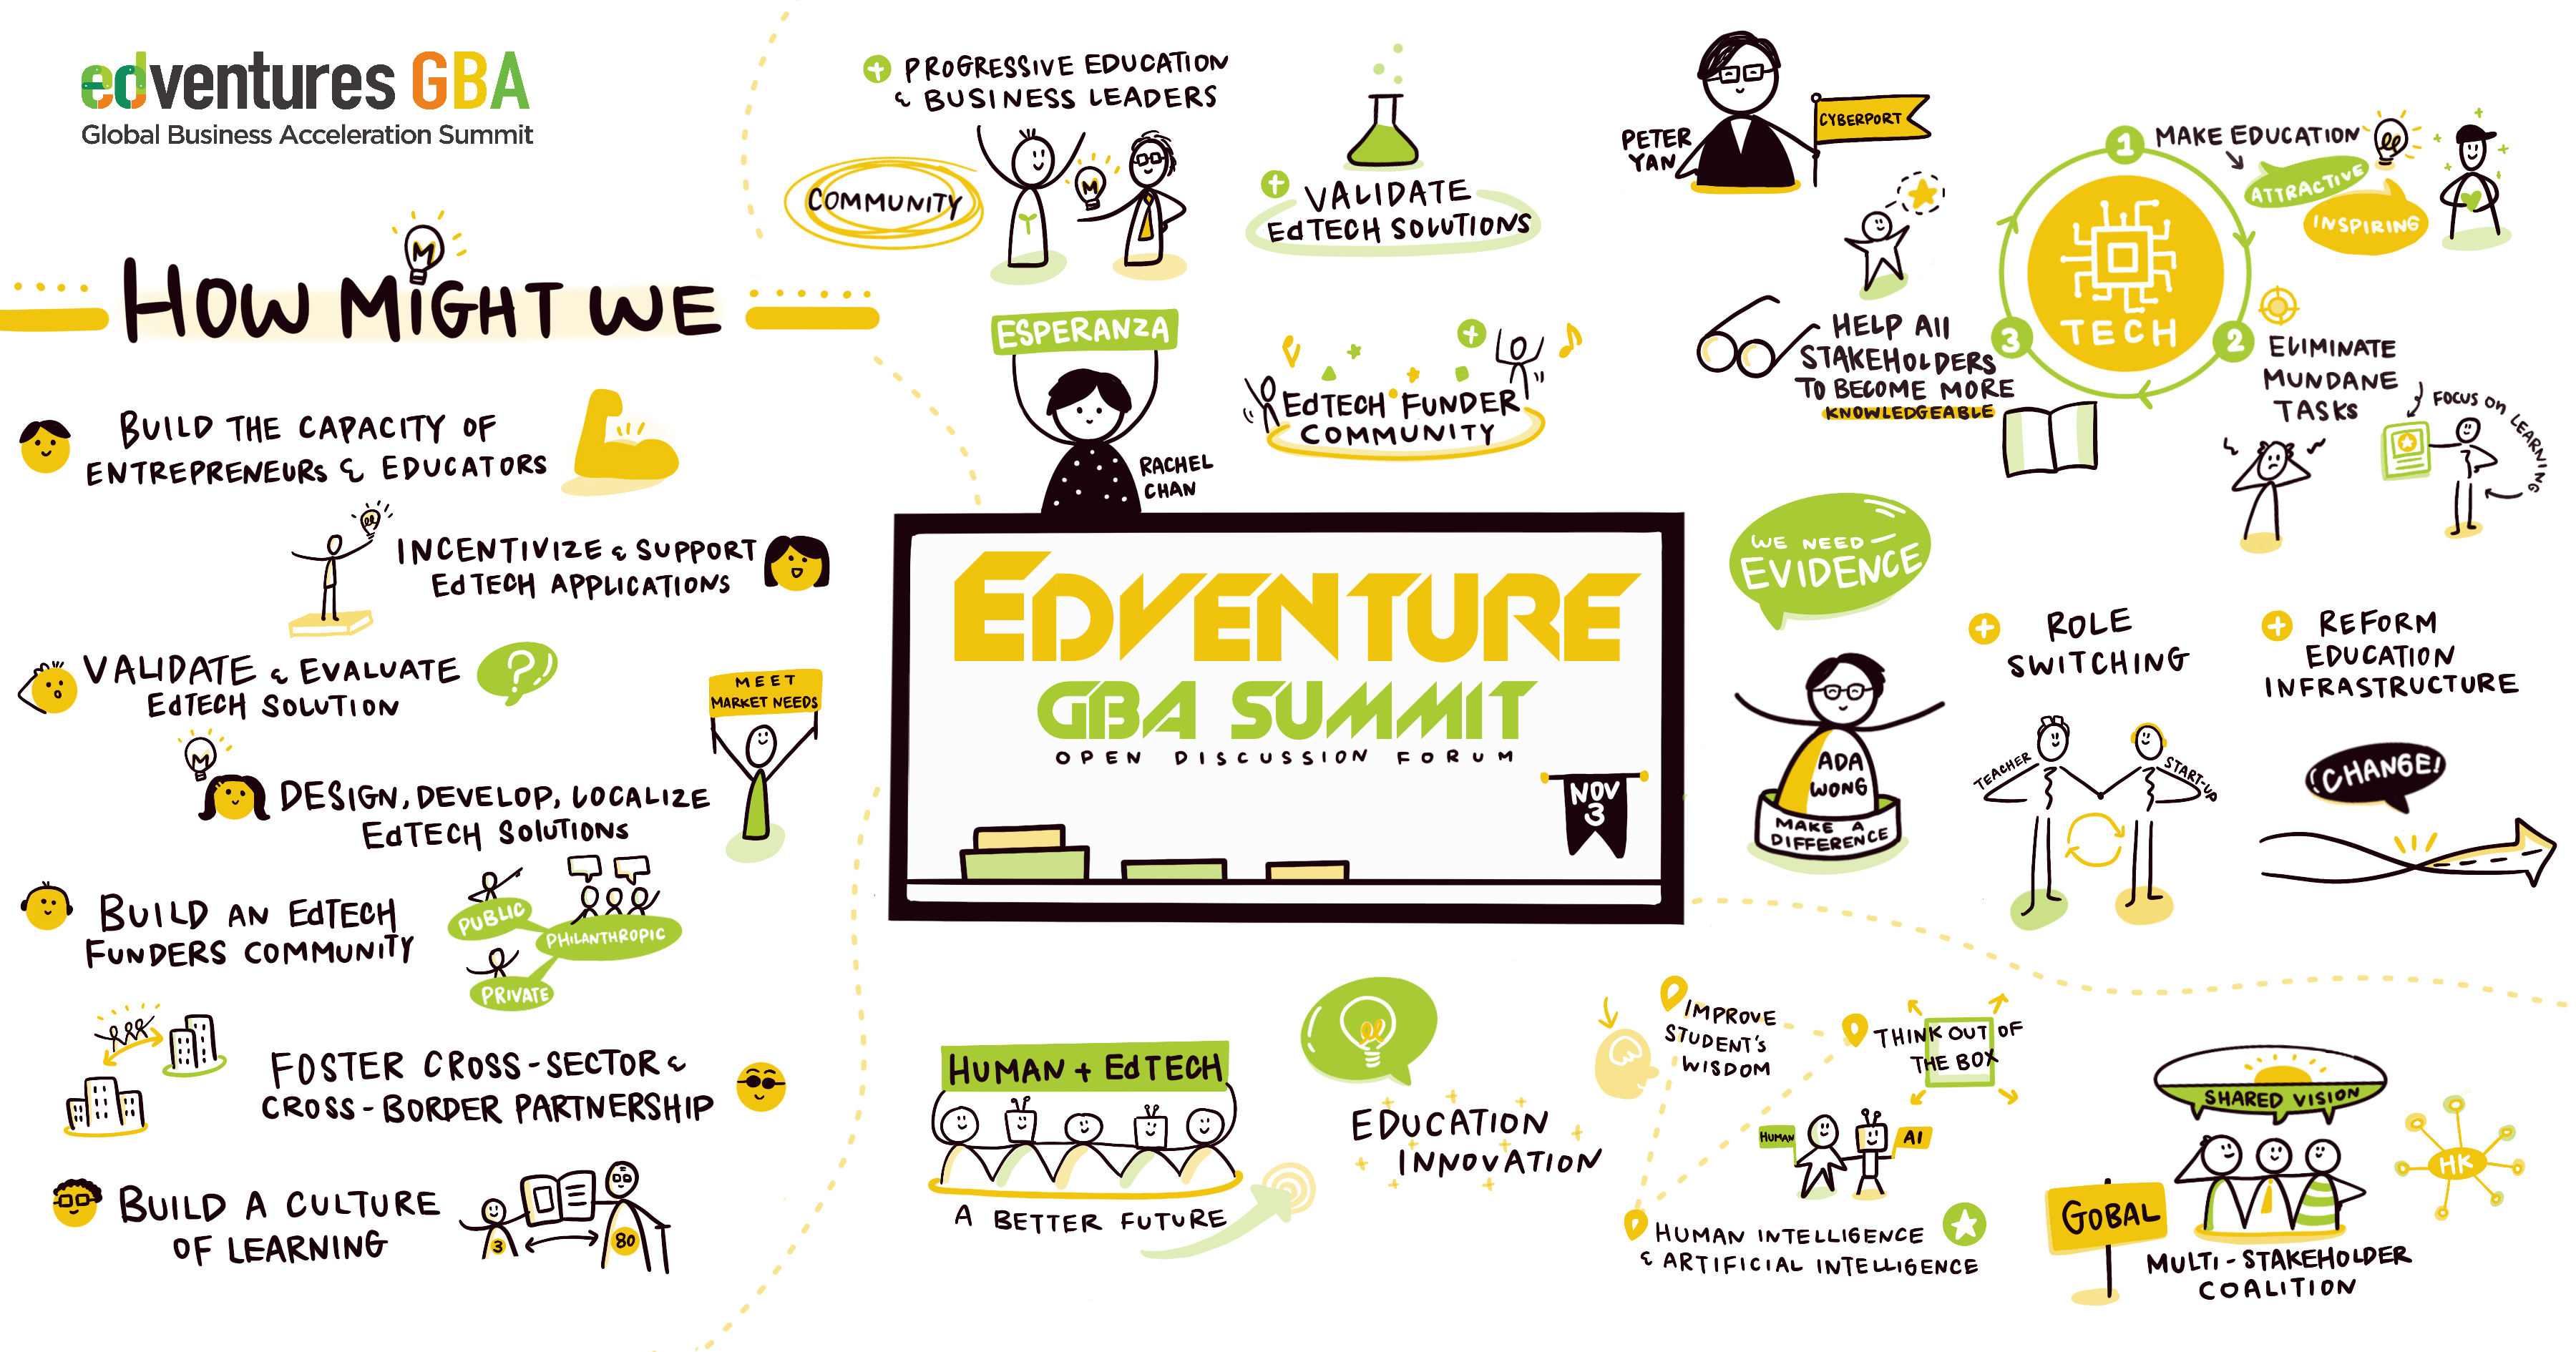 edventures GBA
Global Business Acceleration Summit
M
HOW MIGHT WE
BUILD THE CAPACITY OF
ENTREPRENEURS & EDUCATORS
INCENTIVIZE & SUPPORT
EDTECH APPLICATIONS
VALIDATE & EVALUATE
EDTECH SOLUTION
?
MEET
MARKET NEEDS
M
DESIGN, DEVELOP, LOCALIZE
EDTECH SOLUTIONS
BUILD AN EDTECH
FUNDERS COMMUNITY
PUBLIC
PHILANTHROPIC
PRIVATE
FOSTER CROSS-SECTOR &
CROSS-BORDER PARTNERSHIP
BUILD A CULTURE
OF LEARNING
3
80
+ PROGRESSIVE EDUCATION
& BUSINESS LEADERS
COMMUNITY
M
+ VALIDATE
EDTECH SOLUTIONS
ESPERANZA
RACHEL
CHAN
+
EDTECH FUNDER
COMMUNITY
EDVENTURE
GBA SUMMIT
OPEN DISCUSSION FORUM
NOV
3
PETER
YAN
CYBERPORT
TECH
1 MAKE EDUCATION
ATTRACTIVE
INSPIRING
2 ELIMINATE
MUNDANE
TASKS
FOCUS ON LEARNING
3
HELP All
STAKEHOLDERS
TO BECOME MORE
KNOWLEDGEABLE
WE NEED
EVIDENCE
ADA
WONG
MAKE A
DIFFERENCE
+ ROLE
SWITCHING
TEACHER
START-UP
+ REFORM
EDUCATION
INFRASTRUCTURE
CHANGE!
HUMAN + EDTECH
A BETTER FUTURE
EDUCATION
INNOVATION
IMPROVE
STUDENT'S
WISDOM
THINK OUT OF
THE BOX
HUMAN
AI
HUMAN INTELLIGENCE
& ARTIFICIAL INTELLIGENCE
SHARED VISION
HK
GOBAL
MULTI-STAKEHOLDER
COALITION